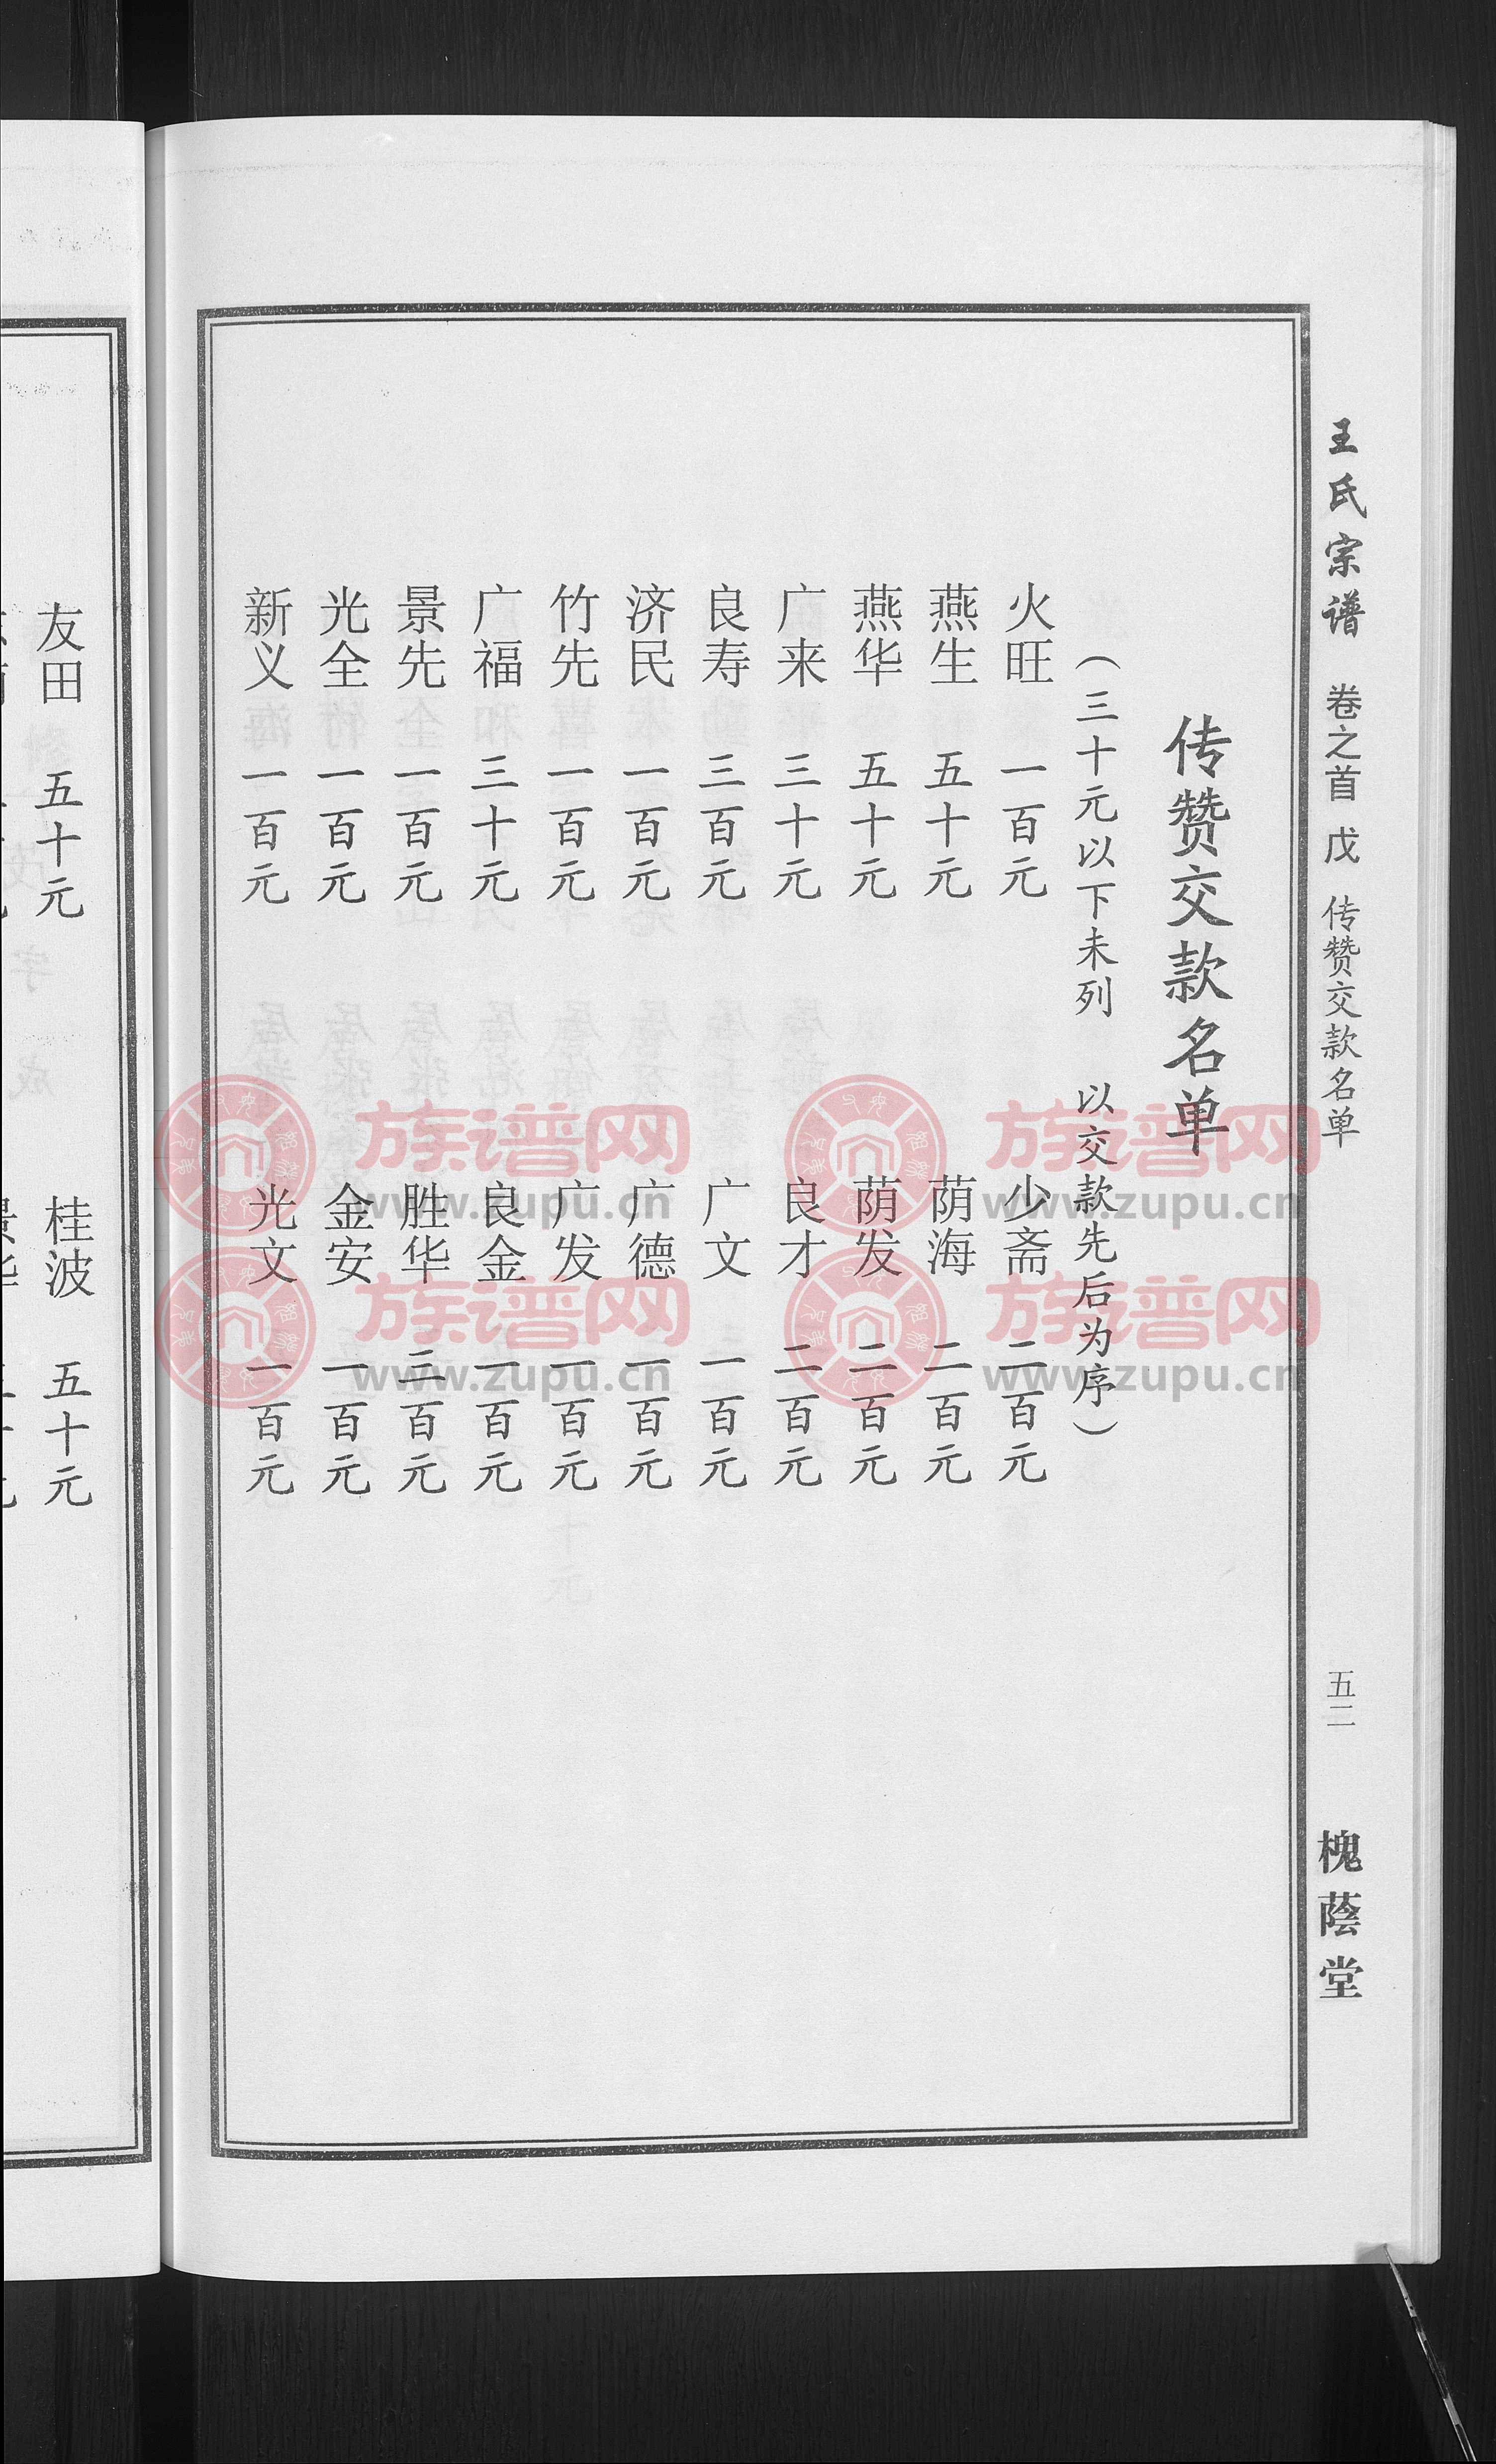 王氏宗谱 卷之首 戊 传赞交款名单 五二 槐蔭堂
传赞交款名单
（三十元以下未列 以交款先后为序）
火旺 一百元 少斋 二百元
燕生 五十元 荫海 二百元
燕华 五十元 荫发 二百元
广来 三十元 良才 二百元
良寿 三百元 广文 一百元
济民 一百元 广德 一百元
竹先 一百元 广发 一百元
广福 三十元 良金 一百元
景先 一百元 胜华 三百元
光全 一百元 金安 一百元
新义 一百元 光文 一百元
友田 五十元 桂波 五十元
族谱网
www.zupu.cn
族谱网
www.zupu.cn
族谱网
www.zupu.cn
族谱网
www.zupu.cn